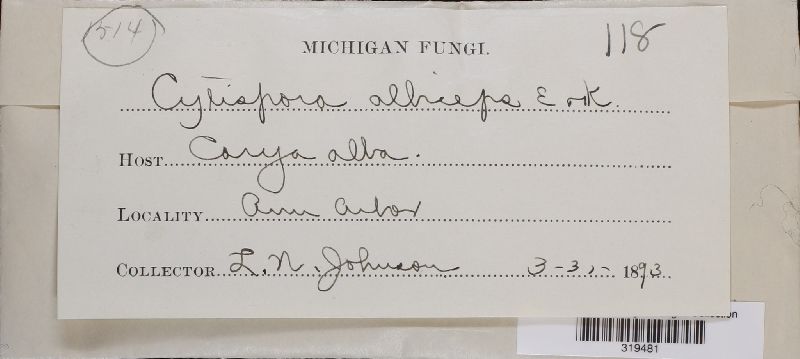 514
118
MICHIGAN FUNGI.
Cytispora albiceps E & K.
HOST Carya alba.
LOCALITY Ann Arbor
COLLECTOR L. N. Johnson 3-31- 1893.
Collection
319481